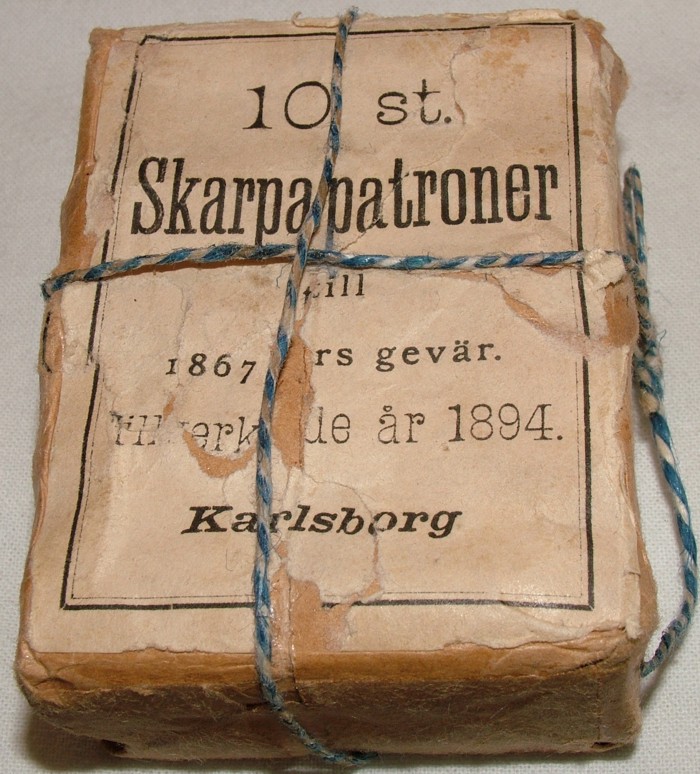 10 st.
Skarpa patroner
till
1867 rs gevär.
år 1894.
Karlsborg